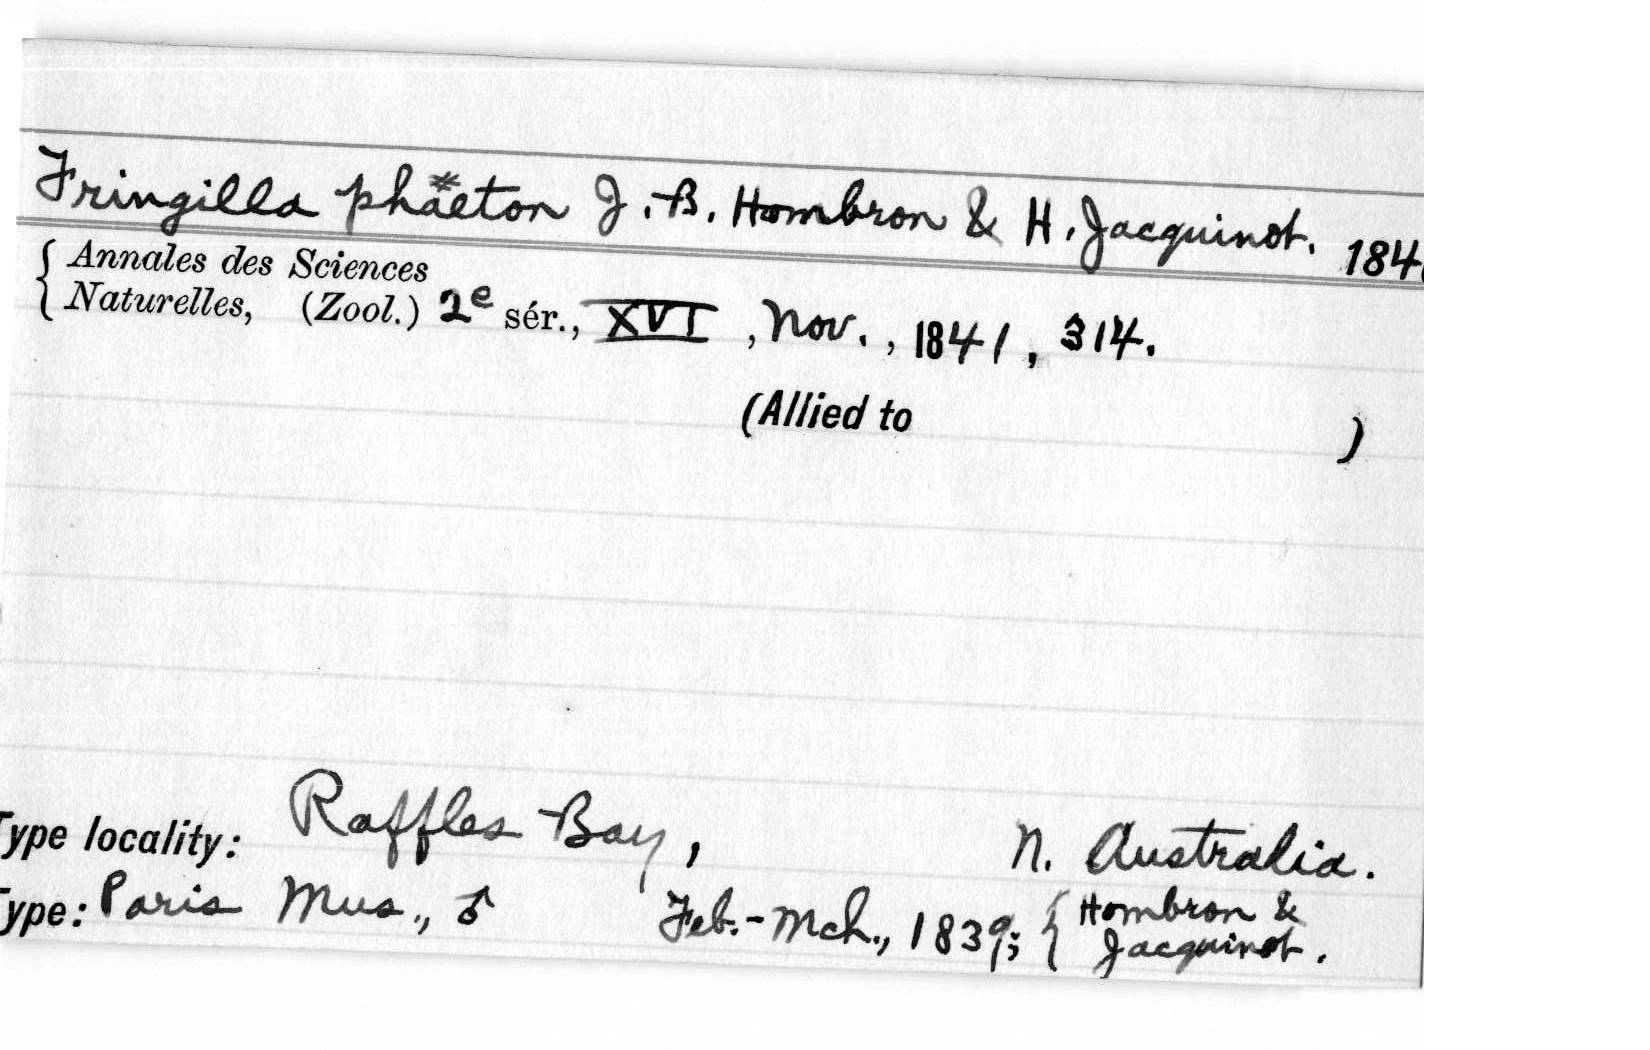 Fringilla phäeton J. B. Hombron & H. Jacquinot. 184
{ Annales des Sciences
{ Naturelles, (Zool.) 2e sér., XVI , Nov. , 1841 , 314.
(Allied to )
Type locality: Raffles Bay, N. Australia.
Type: Paris Mus., ♂ Feb.-Mch., 1839; { Hombron &
Jacquinot.